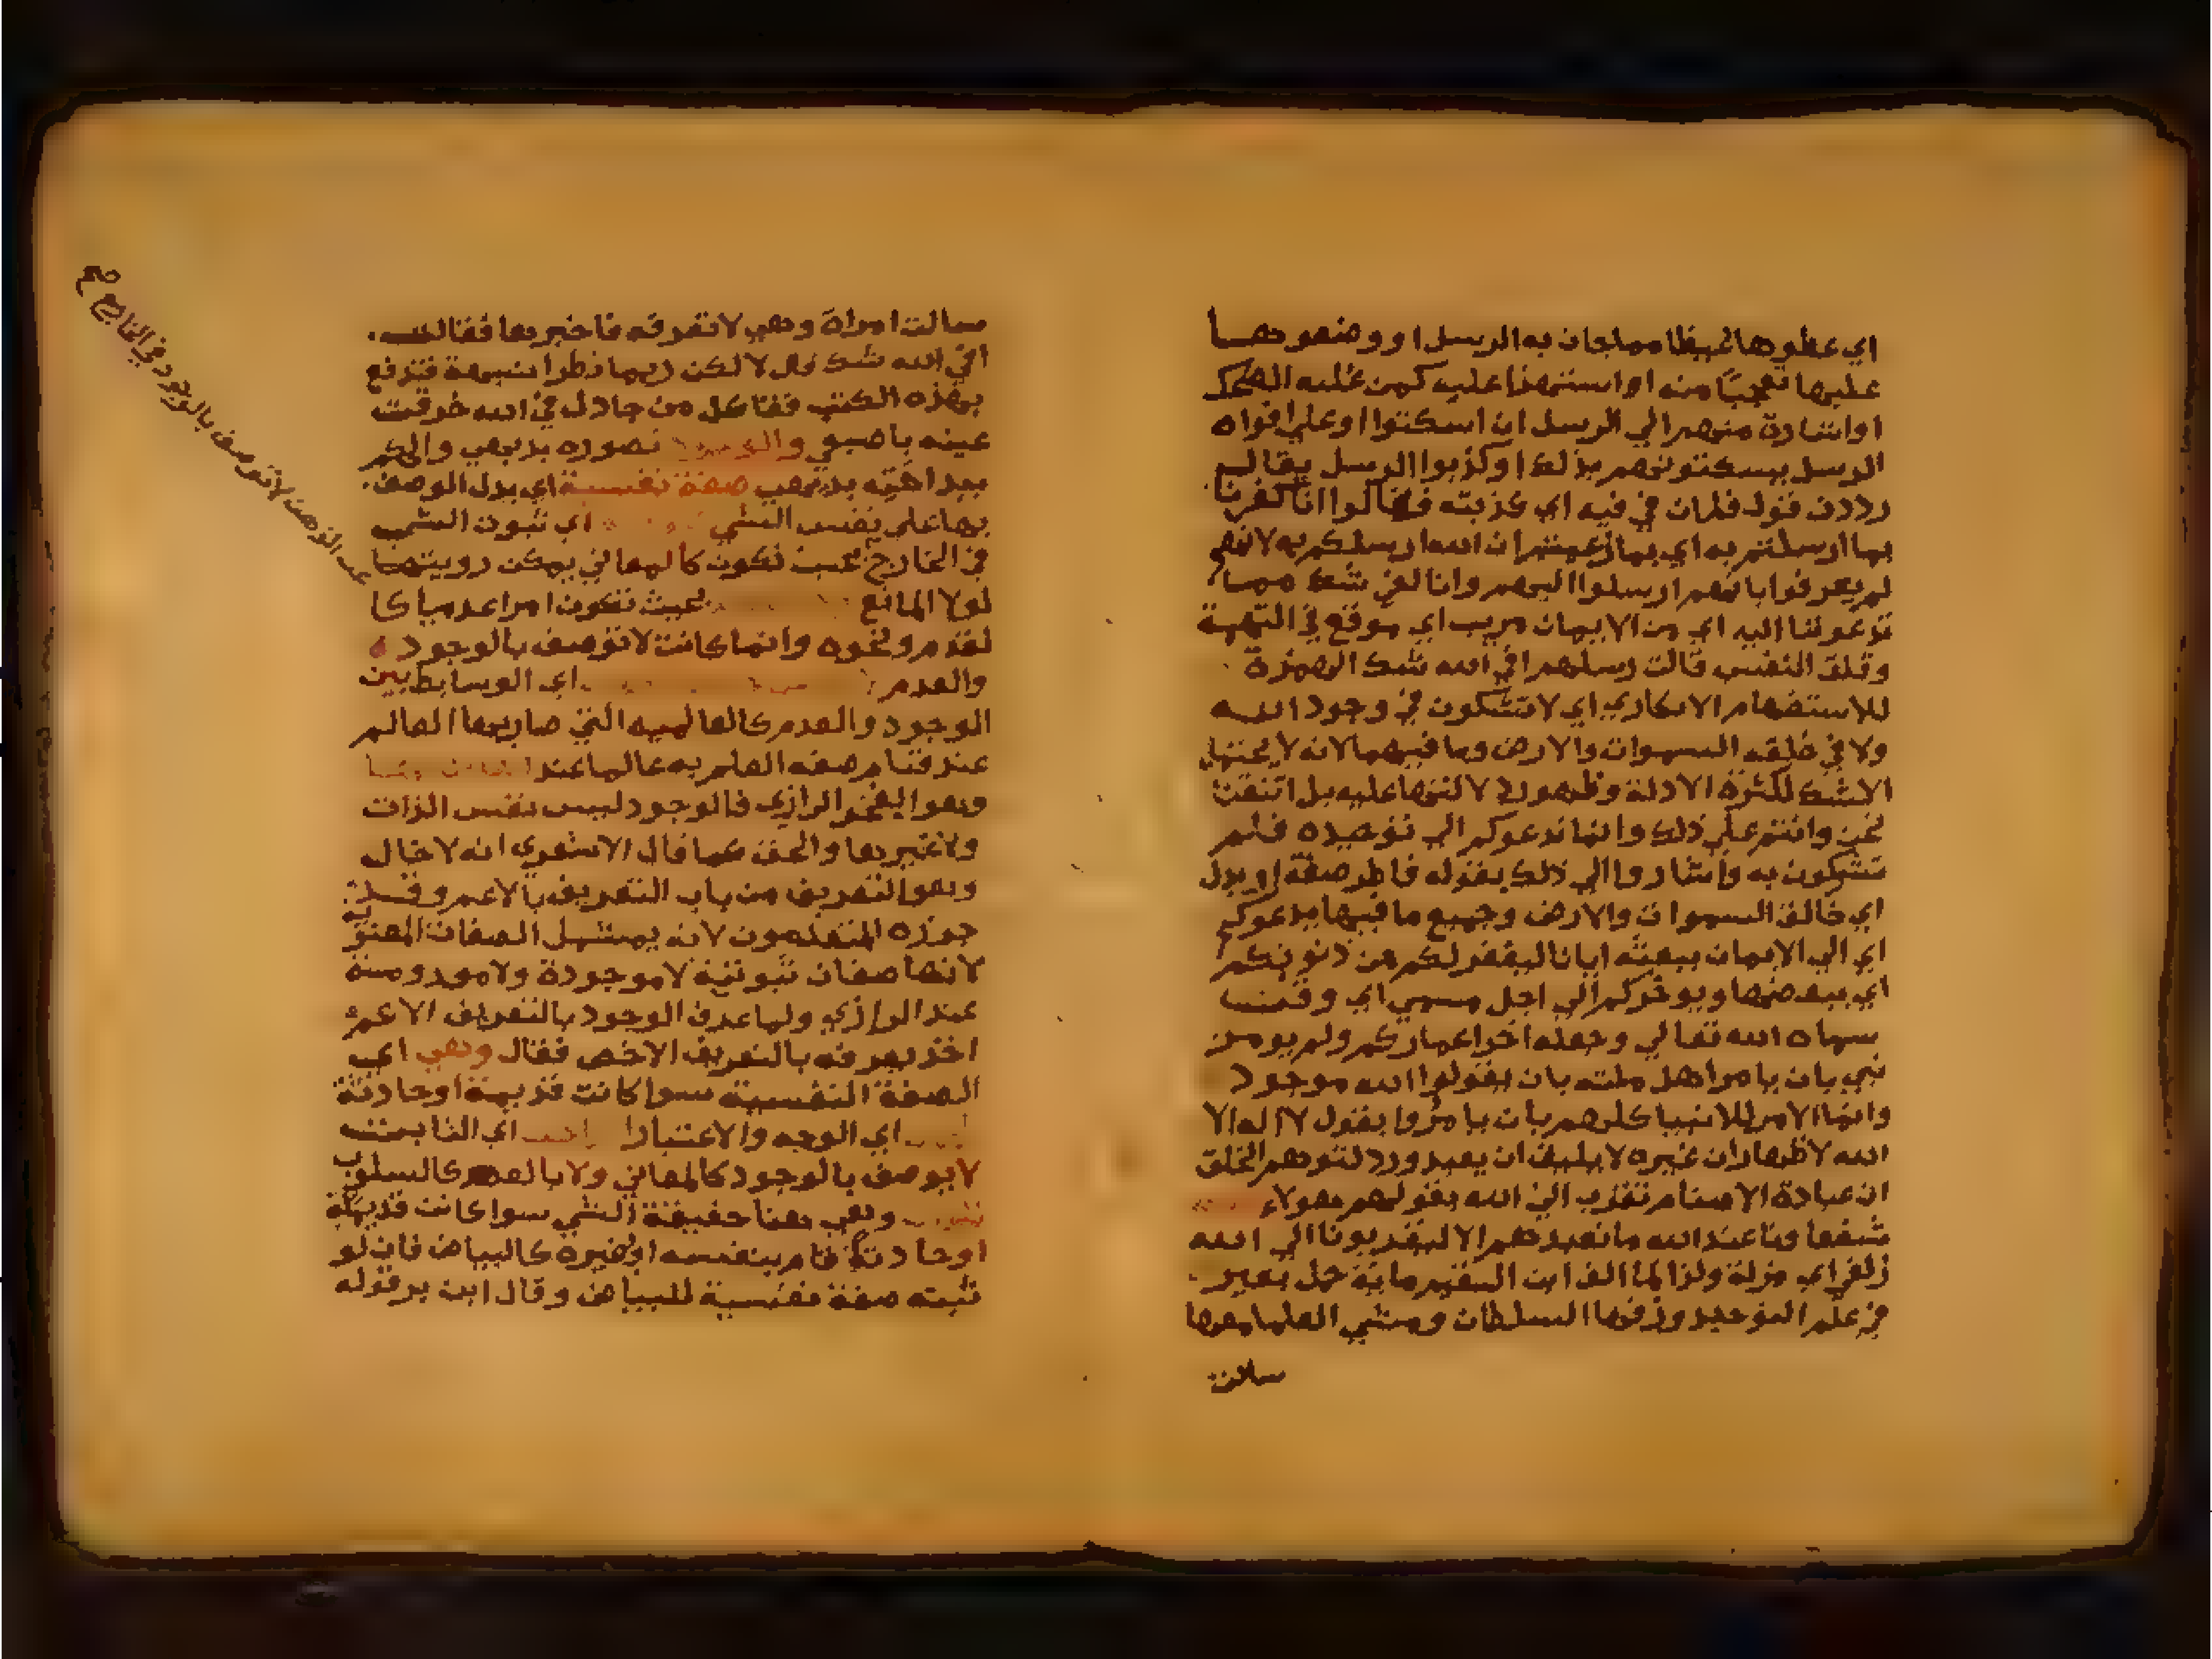 اي عطوها غيظا مما جات به الرسل او وضعوها
عليها تعجبا منه او استهزا عليه كمن غلبه الضحك
او اشارة منهم الي الرسل ان اسكتوا او علي افواه
الرسل يسكتونهم بذلك او كذبوا الرسل يقال
رددت قول فلان في فيه اي كذبته فقالوا انا كفرنا
بما ارسلتم به اي بما زعمتم ان الله ارسلكم به لانهم
لم يعرفوا بانهم ارسلوا اليهم وانا لفي شك مما
تدعوننا اليه اي من الايمان مريب اي موقع في التهمة
وقلق النفس قالت رسلهم افي الله شك الهمزة
للاستفهام الانكاري اي لا تشكون في وجود الله
ولا في خلقه السموات والارض وما فيهما لانه لا يحتمل
الشك لكثرة الادلة وظهور دلالتها عليه بل اتفقنا
نحن وانتم علي ذلك وانما ندعوكم الي توحيده فلم
تشركون به واشاروا الي ذلك بقوله فاطر صفة او بدل
اي خالق السموات والارض وجميع ما فيها يدعوكم
اي الي الايمان ببعثه ايانا ليغفر لكم من ذنوبكم
اي بعضها ويوخركم الي اجل مسمي اي وقت
سماه الله تعالي وجعله اخر اعماركم ولم يومر
نبي بان يامر اهل ملته بان يقولوا الله موجود
وانما الامر للانبيا كلهم بان يامروا بقول لا اله الا
الله لاظهار ان غيره لا يليق ان يعبد ورد لتوهم الخلق
ان عبادة الاصنام تقرب الي الله بقولهم هولاء
شفعاونا عند الله ما نعبدهم الا ليقربونا الي الله
زلفي اي منزلة ولذا لما الف ابن السقيم ماية حمل بعير
في علم التوحيد وزفها السلطان ومشي العلما معها
سالت
سالت امراة وهي لا تعرفه فاخبر بها فقالت
افي الله شك قال لا لكن ربما تطرا شبهة فتدفع
بهذه الكتب فقال كل من جادل في الله خرقت
عينه باصبعي والوجود تصوره بديهي والحكم
ببداهته بديهي صفة نفسية اي يدل الوصف
بها علي نفس الشي اي ثبوت الشي
في الخارج بحيث تكون كالمعاني يمكن رويتها
لولا المانع بحيث تكون امرا عدميا كا
لقدم ونحوه وانما كانت لا توصف بالوجود
والعدم اي الوسايط بين
الوجود والعدم كالعالمية التي صار بها العالم
عند قيام صفة العلم به عالما عند
وهو الفخر الرازي فالوجود ليس نفس الذات
ولا غيرها والحق كما قال الاشعري انه لا حال
وهو التعريف من باب التعريف بالاعم وقد
جوزه المتقدمون لانه يشمل الصفات المعنوية
لانها صفات ثبوتية لا موجودة ولا معدومة
عند الرازي ولما عرف الوجود بالتعريف الاعم
اخذ يعرفه بالتعريف الاخص فقال وهي اي
الصفة النفسية سوا كانت قديمة او حادثة
اي الوجه والاعتبار اي الثابت
لا يوصف بالوجود كالمعاني ولا بالعدم كالسلوب
وهي هنا حقيقة الشي سوا كانت قديمة
او حادثة قام بنفسه او بغيره كالبياض فان لو
نيته صفة نفسية للبياض وقال ابن يرقوله
عند الذهن لا توصف بالوجود في الخارج صح